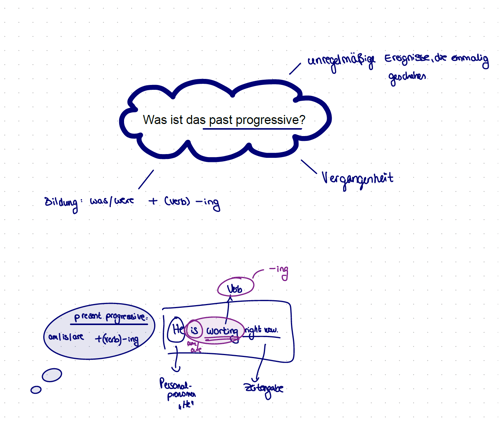 unregelmäßige Ereignisse, die einmalig
geschehen
Was ist das past progressive?
Vergangenheit
Bildung: was/were + (verb) -ing
-ing
Verb
present progressive:
am/is/are +(verb)-ing
He is working right now.
am/
are
Personal-
pronomen
„He"
Zeitangabe